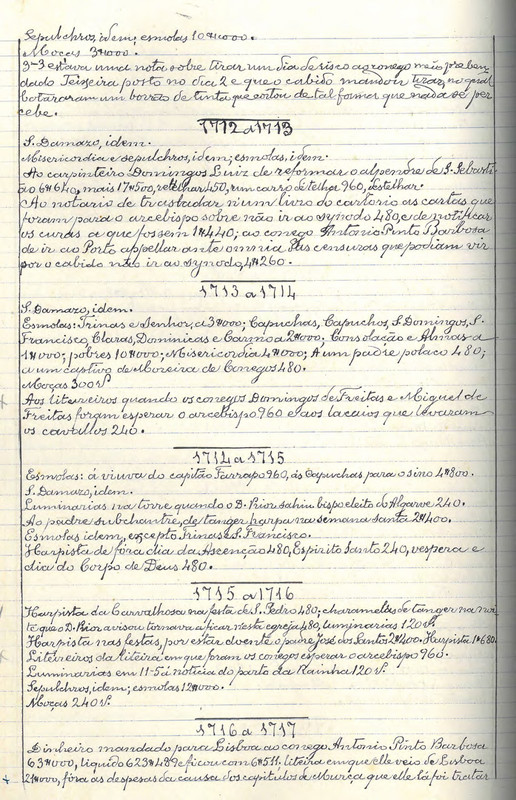 Sepulchros, idem; esmolas 10#000.
Moças 3#000.
3-3 estava uma nota sobre tirar um dia de risco ao conego meio preben
dado Teixeira posto no dia 2 e que o cabido mandou tirar, no qual
botaram um borrão de tinta que cortou de tal forma que nada se per
cebe.
1712 a 1713
S. Damazo, idem.
Misericordia e sepulchros, idem; esmolas, idem.
Ao carpinteiro Domingos Luiz de reformar o alpendre de S. Sebasti
ão 6#640, mais 17#500, retelhar 450, um carro de telha 960, destelhar.
Ao notario de trasladar n'um livro do cartorio as cartas que
foram para o arcebispo sobre não ir ao synodo 480, e de notificar
os curas a que fossem 1#440; ao conego Antonio Pinto Barbosa
de ir ao Porto appellar ante omnia das censuras que podiam vir
por o cabido não ir ao synodo, 4#260.
1713 a 1714
S. Damazo, idem.
Esmolas: Trinas e Senhor, a 3#000; Capuchas, Capuchos, S. Domingos, S.
Francisco, Claras, Dominicas e Carmo a 2#000; Consolação e Almas a
1#000; pobres 10#000; Misericordia 4#000; A um padre polaco 480;
a um cativo de Moreira de Conegos 480.
Moças 300 rs.
Aos liteireiros quando os conegos Domingos de Freitas e Miguel de
Freitas foram esperar o arcebispo 960 e aos lacaios que levaram
os cavallos 240.
1714 a 1715
Esmolas: á viuva do capitão Farrapo 960, ás Capuchas para o sino 4#800.
S. Damazo, idem.
Luminarias na torre quando o D. Prior sahiu bispo eleito do Algarve 240.
Ao padre subchantre, de tanger harpa na semana santa 2#400.
Esmolas idem, excepto Trinas e S. Francisco.
Harpista de fóra dia da Ascenção 480, Espirito Santo 240, vespera e
dia do Corpo de Deus 480.
1715 a 1716
Harpista da Carvalhosa na festa de S. Pedro 480; charamelas de tanger na noi
te que o D. Prior avisou tornava a ficar nesta egreja 480, luminarias 120 rs.
Harpista nas festas, por estar doente o padre José dos Santos 2#400. Harpista 1#680.
Liteireiros da liteira em que foram os conegos esperar o arcebispo 960.
Luminarias em 11-5 á noticia do parto da Rainha 120 rs.
Sepulchros, idem; esmolas 12#000.
Moças 240 rs.
1716 a 1717
Dinheiro mandado para Lisboa ao conego Antonio Pinto Barbosa
63#000, liquido 623#489 e ficou com 6#511; liteira em que elle veio de Lisboa
21#000, fóra as despesas da causa dos capitulos de Murça que elle lá foi tratar